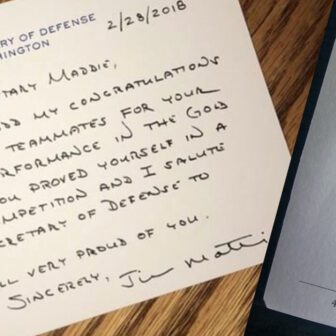 RY OF DEFENSE
HINGTON
2/28/2018
TARY MADDIE,
DD MY CONGRATULATIONS
TEAMMATES FOR YOUR
RFORMANCE IN THE GOLD
OU PROVED YOURSELF IN A
MPETITION AND I SALUTE
CRETARY OF DEFENSE TO
LL VERY PROUD OF YOU.
SINCERELY, Jim Matti